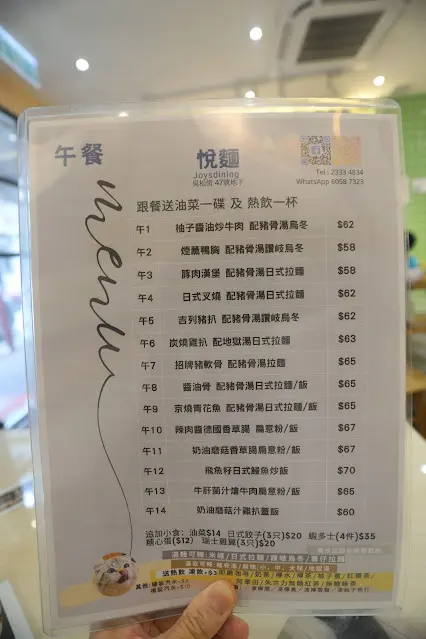 午餐
悅麵
Joysdining
吳松街 47號地下
Tel : 2333 4834
WhatsApp 6058 7323
menu
跟餐送油菜一碟 及 熱飲一杯
午1 柚子醬油炒牛肉 配豬骨湯烏冬 $62
午2 煙薰鴨胸 配豬骨湯讚岐烏冬 $58
午3 豚肉漢堡 配豬骨湯日式拉麵 $58
午4 日式叉燒 配豬骨湯日式拉麵 $62
午5 吉列豬扒 配豬骨湯讚岐烏冬 $62
午6 炭燒雞扒 配地獄湯日式拉麵 $63
午7 招牌豬軟骨 配豬骨湯拉麵 $65
午8 醬油骨 配豬骨湯日式拉麵/飯 $65
午9 京燒青花魚 配豬骨湯日式拉麵/飯 $65
午10 辣肉醬德國香草腸 扁意粉/飯 $67
午11 奶油磨菇香草腸扁意粉/飯 $67
午12 飛魚籽日式鰻魚炒飯 $70
午13 牛肝菌汁燴牛肉扁意粉/飯 $65
午14 奶油磨菇汁雞扒蓋飯 $60
追加小食: 油菜$14 日式餃子(3只)$20 蝦多士(4件)$35
糖心蛋($12) 瑞士雞翼(3只)$20
湯麵可轉:米線/日式拉麵/讚岐烏冬/薯仔拉麵
送熱飲 凍飲+$3